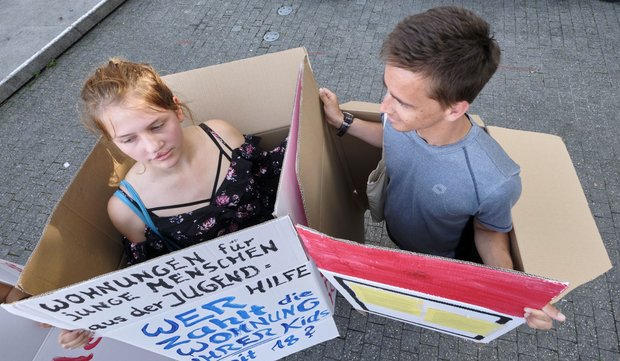 WOHNUNGEN für
JUNGE MENSCHEN
aus der JUGEND=
HILFE
WER
zahlt die
WOHNUNG
IHRER Kids
mit 18?